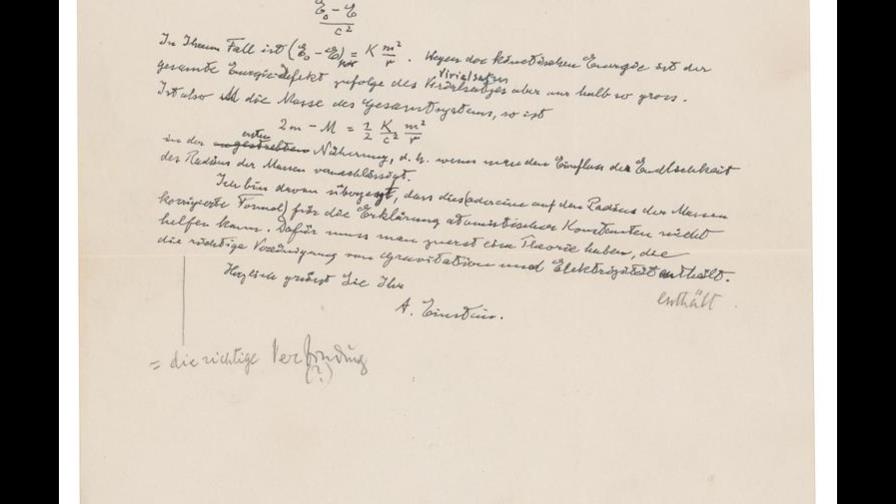 ℰ₀ – ℰ
c²
In Ihrem Fall ist (ℰ₀ – ℰ)pot = K m²/r. Wegen der kinetischen Energie ist der
Virialsatzes
gesamte Energie-Defekt zufolge des aber nur halb so gross.
Ist also M die Masse des Gesamtsystems, so ist
2m – M = 1/2 K/c² m²/r
ersten
in der angestrebten Näherung, d. h. wenn man den Einfluss der Endlichkeit
des Radius der Massen vernachlässigt.
Ich bin davon überzeugt, dass dies (oder eine auf den Radius der Massen
korrigierte Formel) für die Erklärung atomistischer Konstanten nicht
helfen kann. Dafür muss man zuerst eine Theorie haben, die
die richtige Vereinigung von Gravitation und Elektrizität enthält.
enthält
Herzlich grüsst Sie Ihr
A. Einstein.
= die richtige Verbindung
(?)